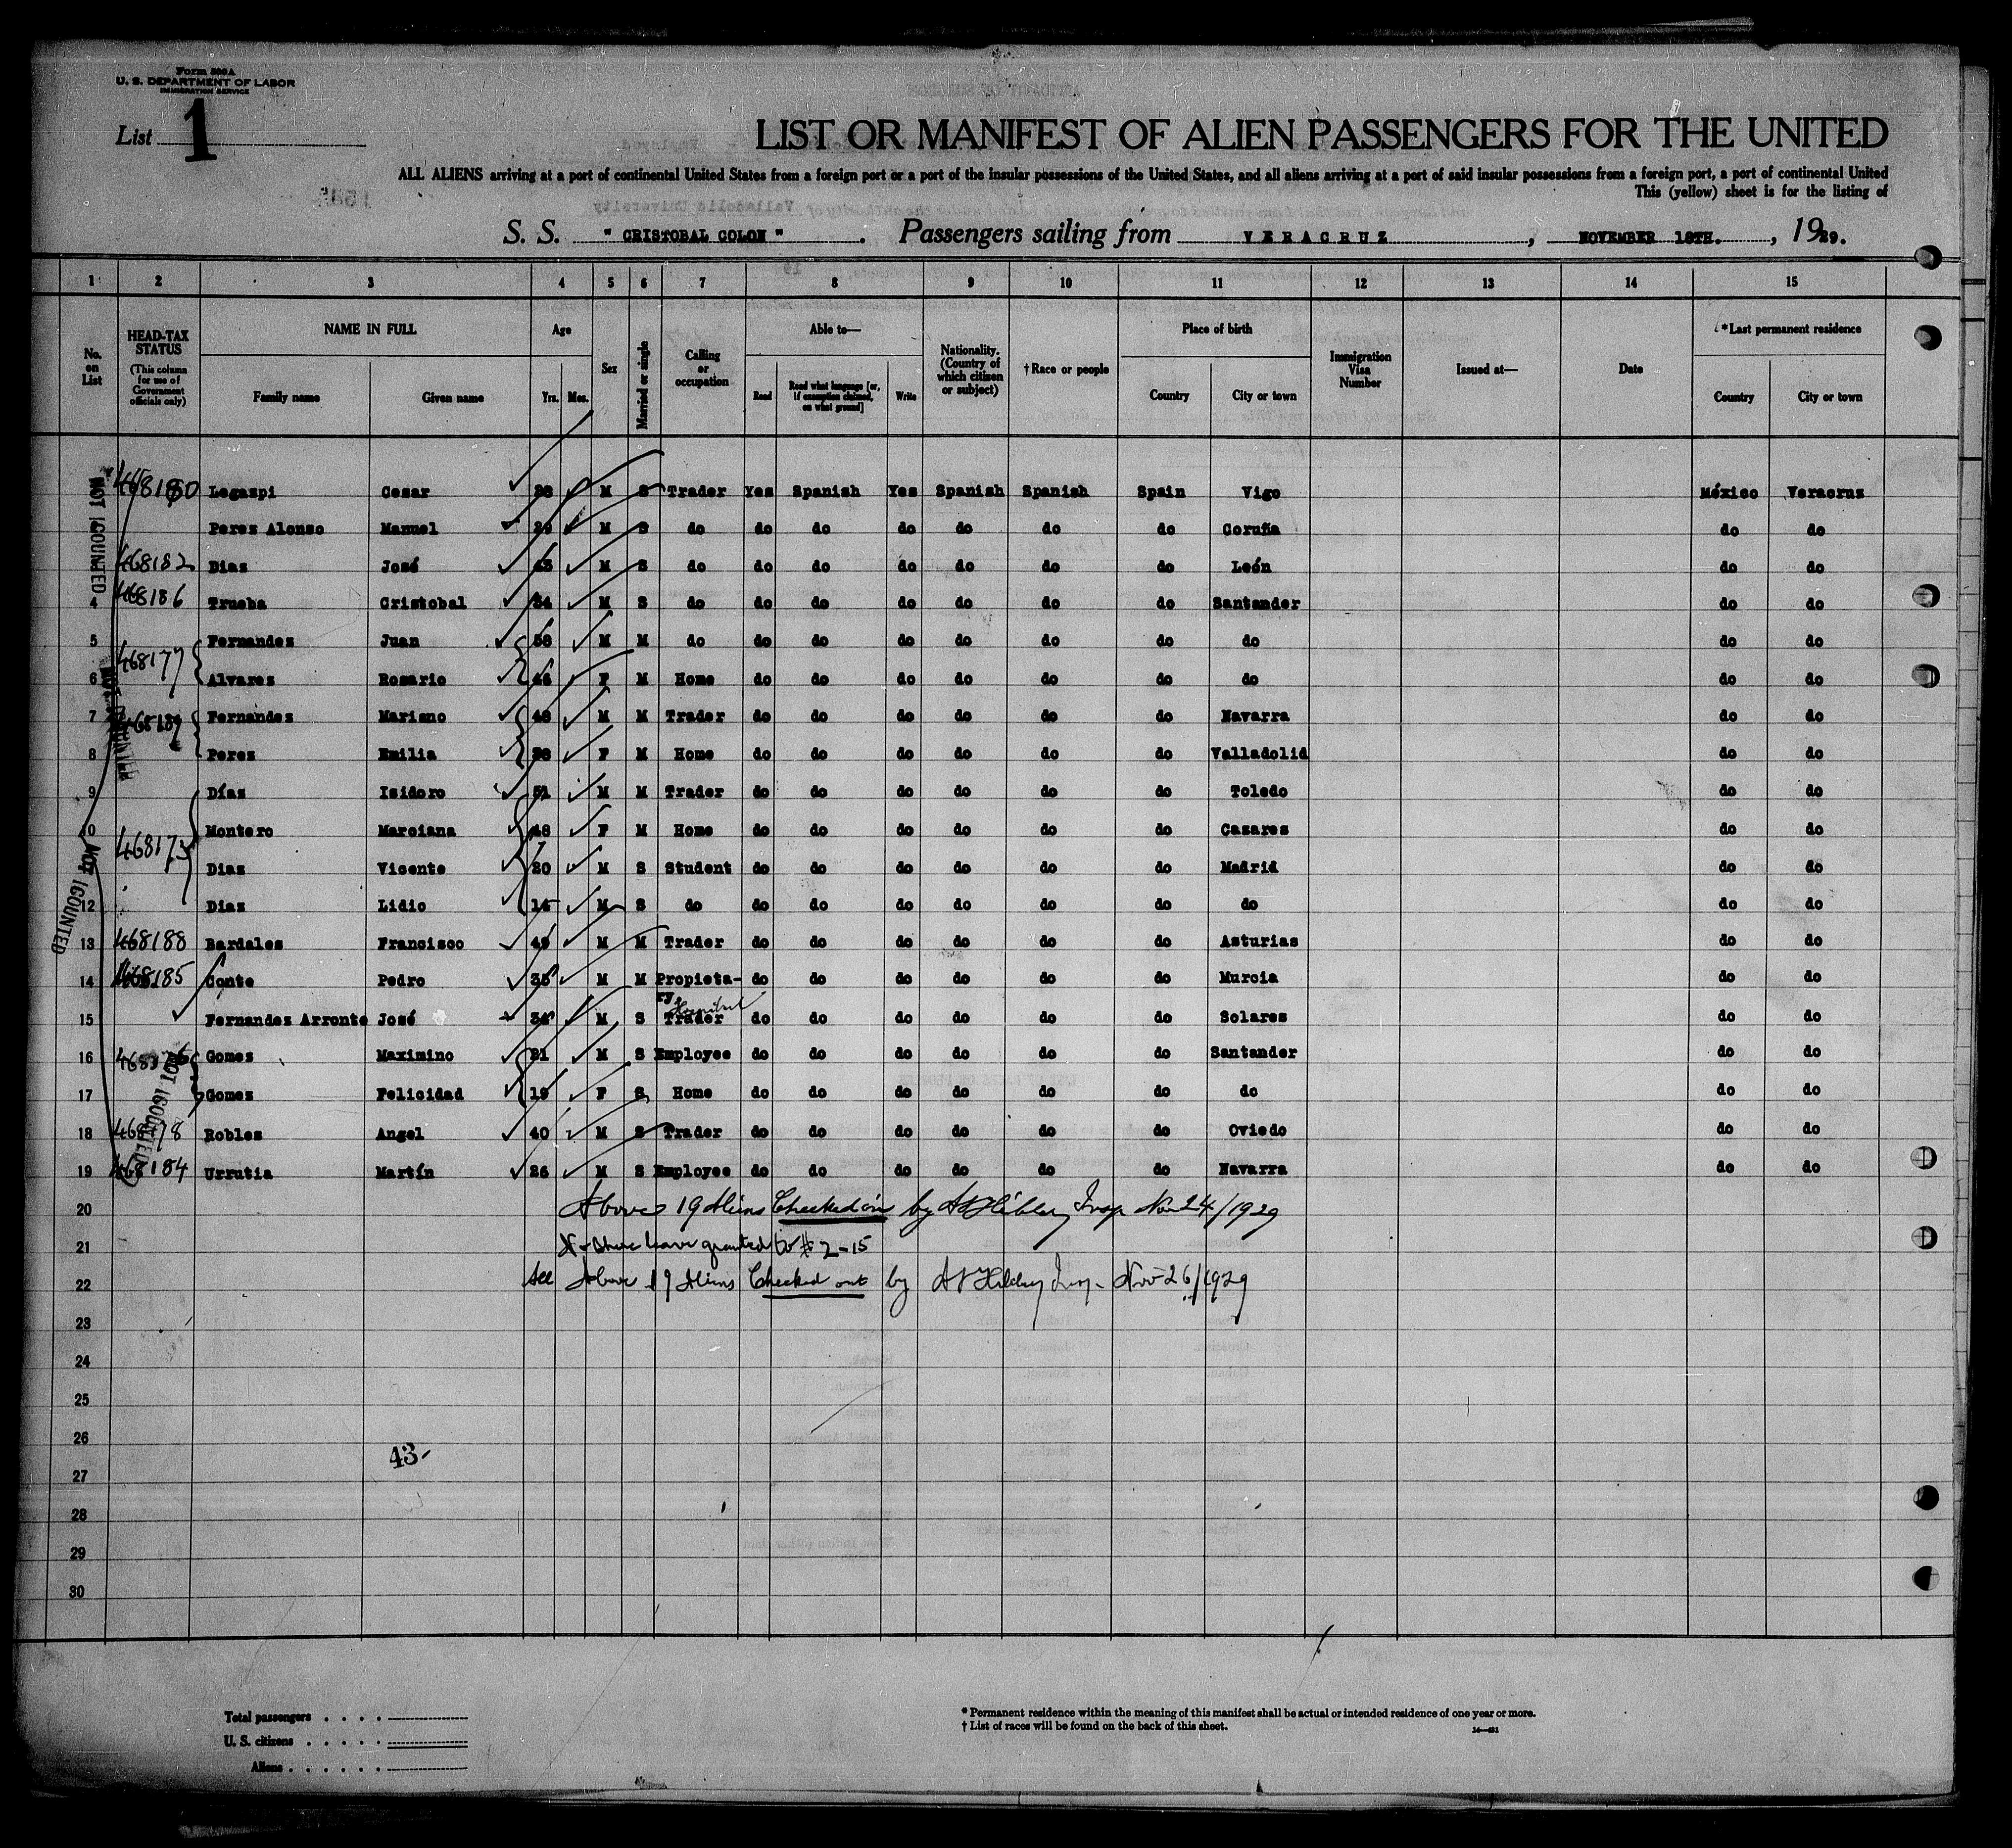 Form 500A
U. S. DEPARTMENT OF LABOR
IMMIGRATION SERVICE
List 1
LIST OR MANIFEST OF ALIEN PASSENGERS FOR THE UNITED
ALL ALIENS arriving at a port of continental United States from a foreign port or a port of the insular possessions of the United States, and all aliens arriving at a port of said insular possessions from a foreign port, a port of continental United
This (yellow) sheet is for the listing of
S. S. " CRISTOBAL COLON " . Passengers sailing from VERACRUZ , NOVEMBER 18TH. , 1929.
1 2 3 4 5 6 7 8 9 10 11 12 13 14 15
No. on List HEAD-TAX STATUS (This column for use of Government officials only) NAME IN FULL Family name Given name Age Yrs. Mos. Sex Married or single Calling or occupation Able to— Read Read what language [or, if exemption claimed, on what ground] Write Nationality. (Country of which citizen or subject) †Race or people Place of birth Country City or town Immigration Visa Number Issued at— Date *Last permanent residence Country City or town
Legaspi Cesar M S Trader Yes Spanish Yes Spanish Spanish Spain Vigo México Veracruz
Perez Alonso Manuel 29 M S do do do do do do do Coruña do do
468182 Dias José M S do do do do do do do León do do
4 468186 Trueba Cristobal 34 M S do do do do do do do Santander do do
5 Fernandez Juan M M do do do do do do do do do do
468177
6 Alvarez Rosario F M Home do do do do do do do do do
7 Fernandez Mariano M M Trader do do do do do do Navarra do do
8 Perez Emilia F M Home do do do do do do Valladolid do do
9 Días Isidoro 51 M M Trader do do do do do do Toledo do do
10 Montero Marciana 48 F M Home do do do do do do Cazares do do
Dias Vicente 20 M S Student do do do do do do Madrid do do
12 Dias Lidio M S do do do do do do do do do do
13 468188 Bardales Francisco M M Trader do do do do do do Asturias do do
14 468185 Conte Pedro M M Propieta-ry. do do do do do do Murcia do do
15 Fernandez Arronte José 34 M S Trader do do do do do do Solares do do
16 Gomez Maximino 21 M S Employee do do do do do do Santander do do
17 Gomez Felicidad 19 F S Home do do do do do do do do do
18 Robles Angel 40 M S Trader do do do do do do Oviedo do do
19 468184 Urrutia Martín 26 M S Employee do do do do do do Navarra do do
NOT COUNTED
NOT COUNTED
NOT COUNTED
20 Above 19 Aliens Checked in by Insp Nov 24/1929
21 X - Shore leave granted to # 2-15
22 All Above 19 Aliens Checked out by Insp - Nov 26/1929
23
24
25
26
43-
27
28
29
30
Total passengers . . . .
U. S. citizens . . . . .
Aliens . . . . . .
* Permanent residence within the meaning of this manifest shall be actual or intended residence of one year or more.
† List of races will be found on the back of this sheet.